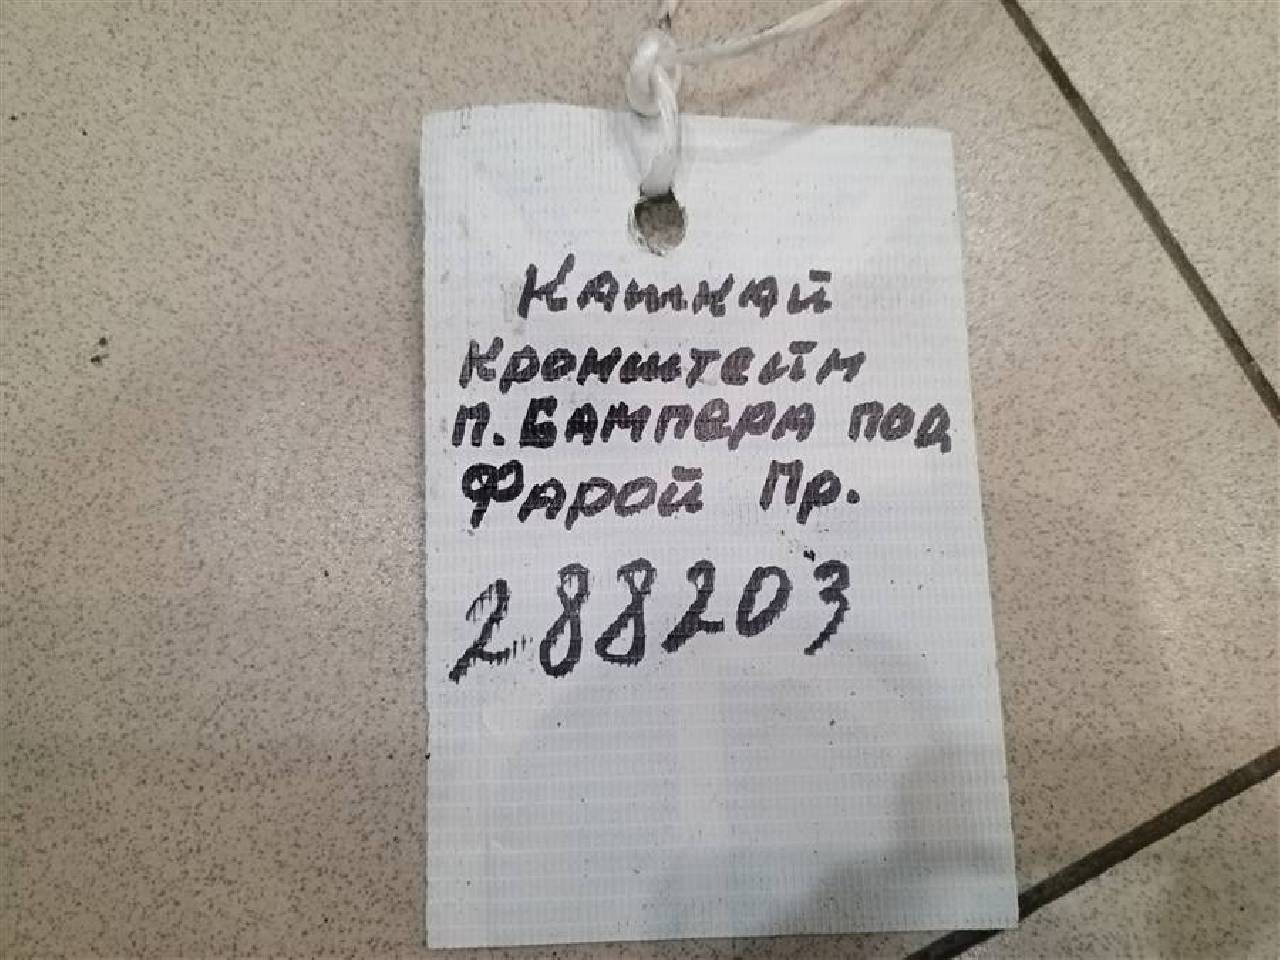 Кашкай
Кронштейн
п. Бампера под
Фарой Пр.
288203